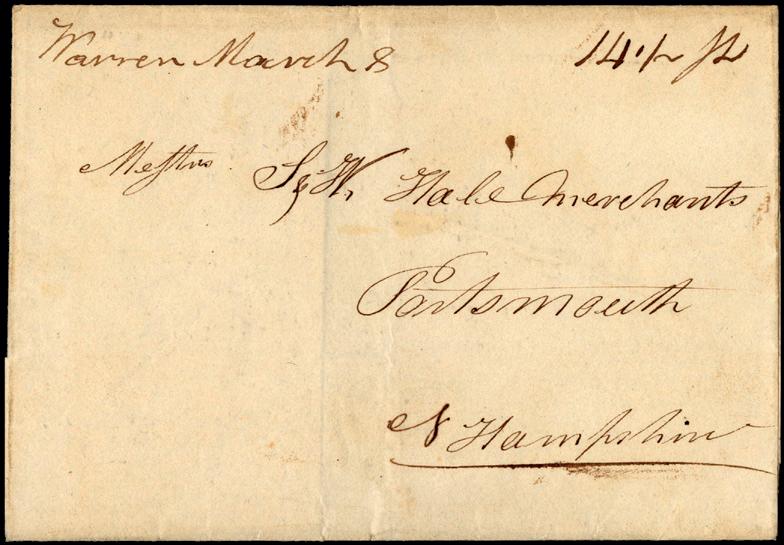 Warren March 8
Messrs S & W Hale Merchants
Portsmouth
N Hampshire